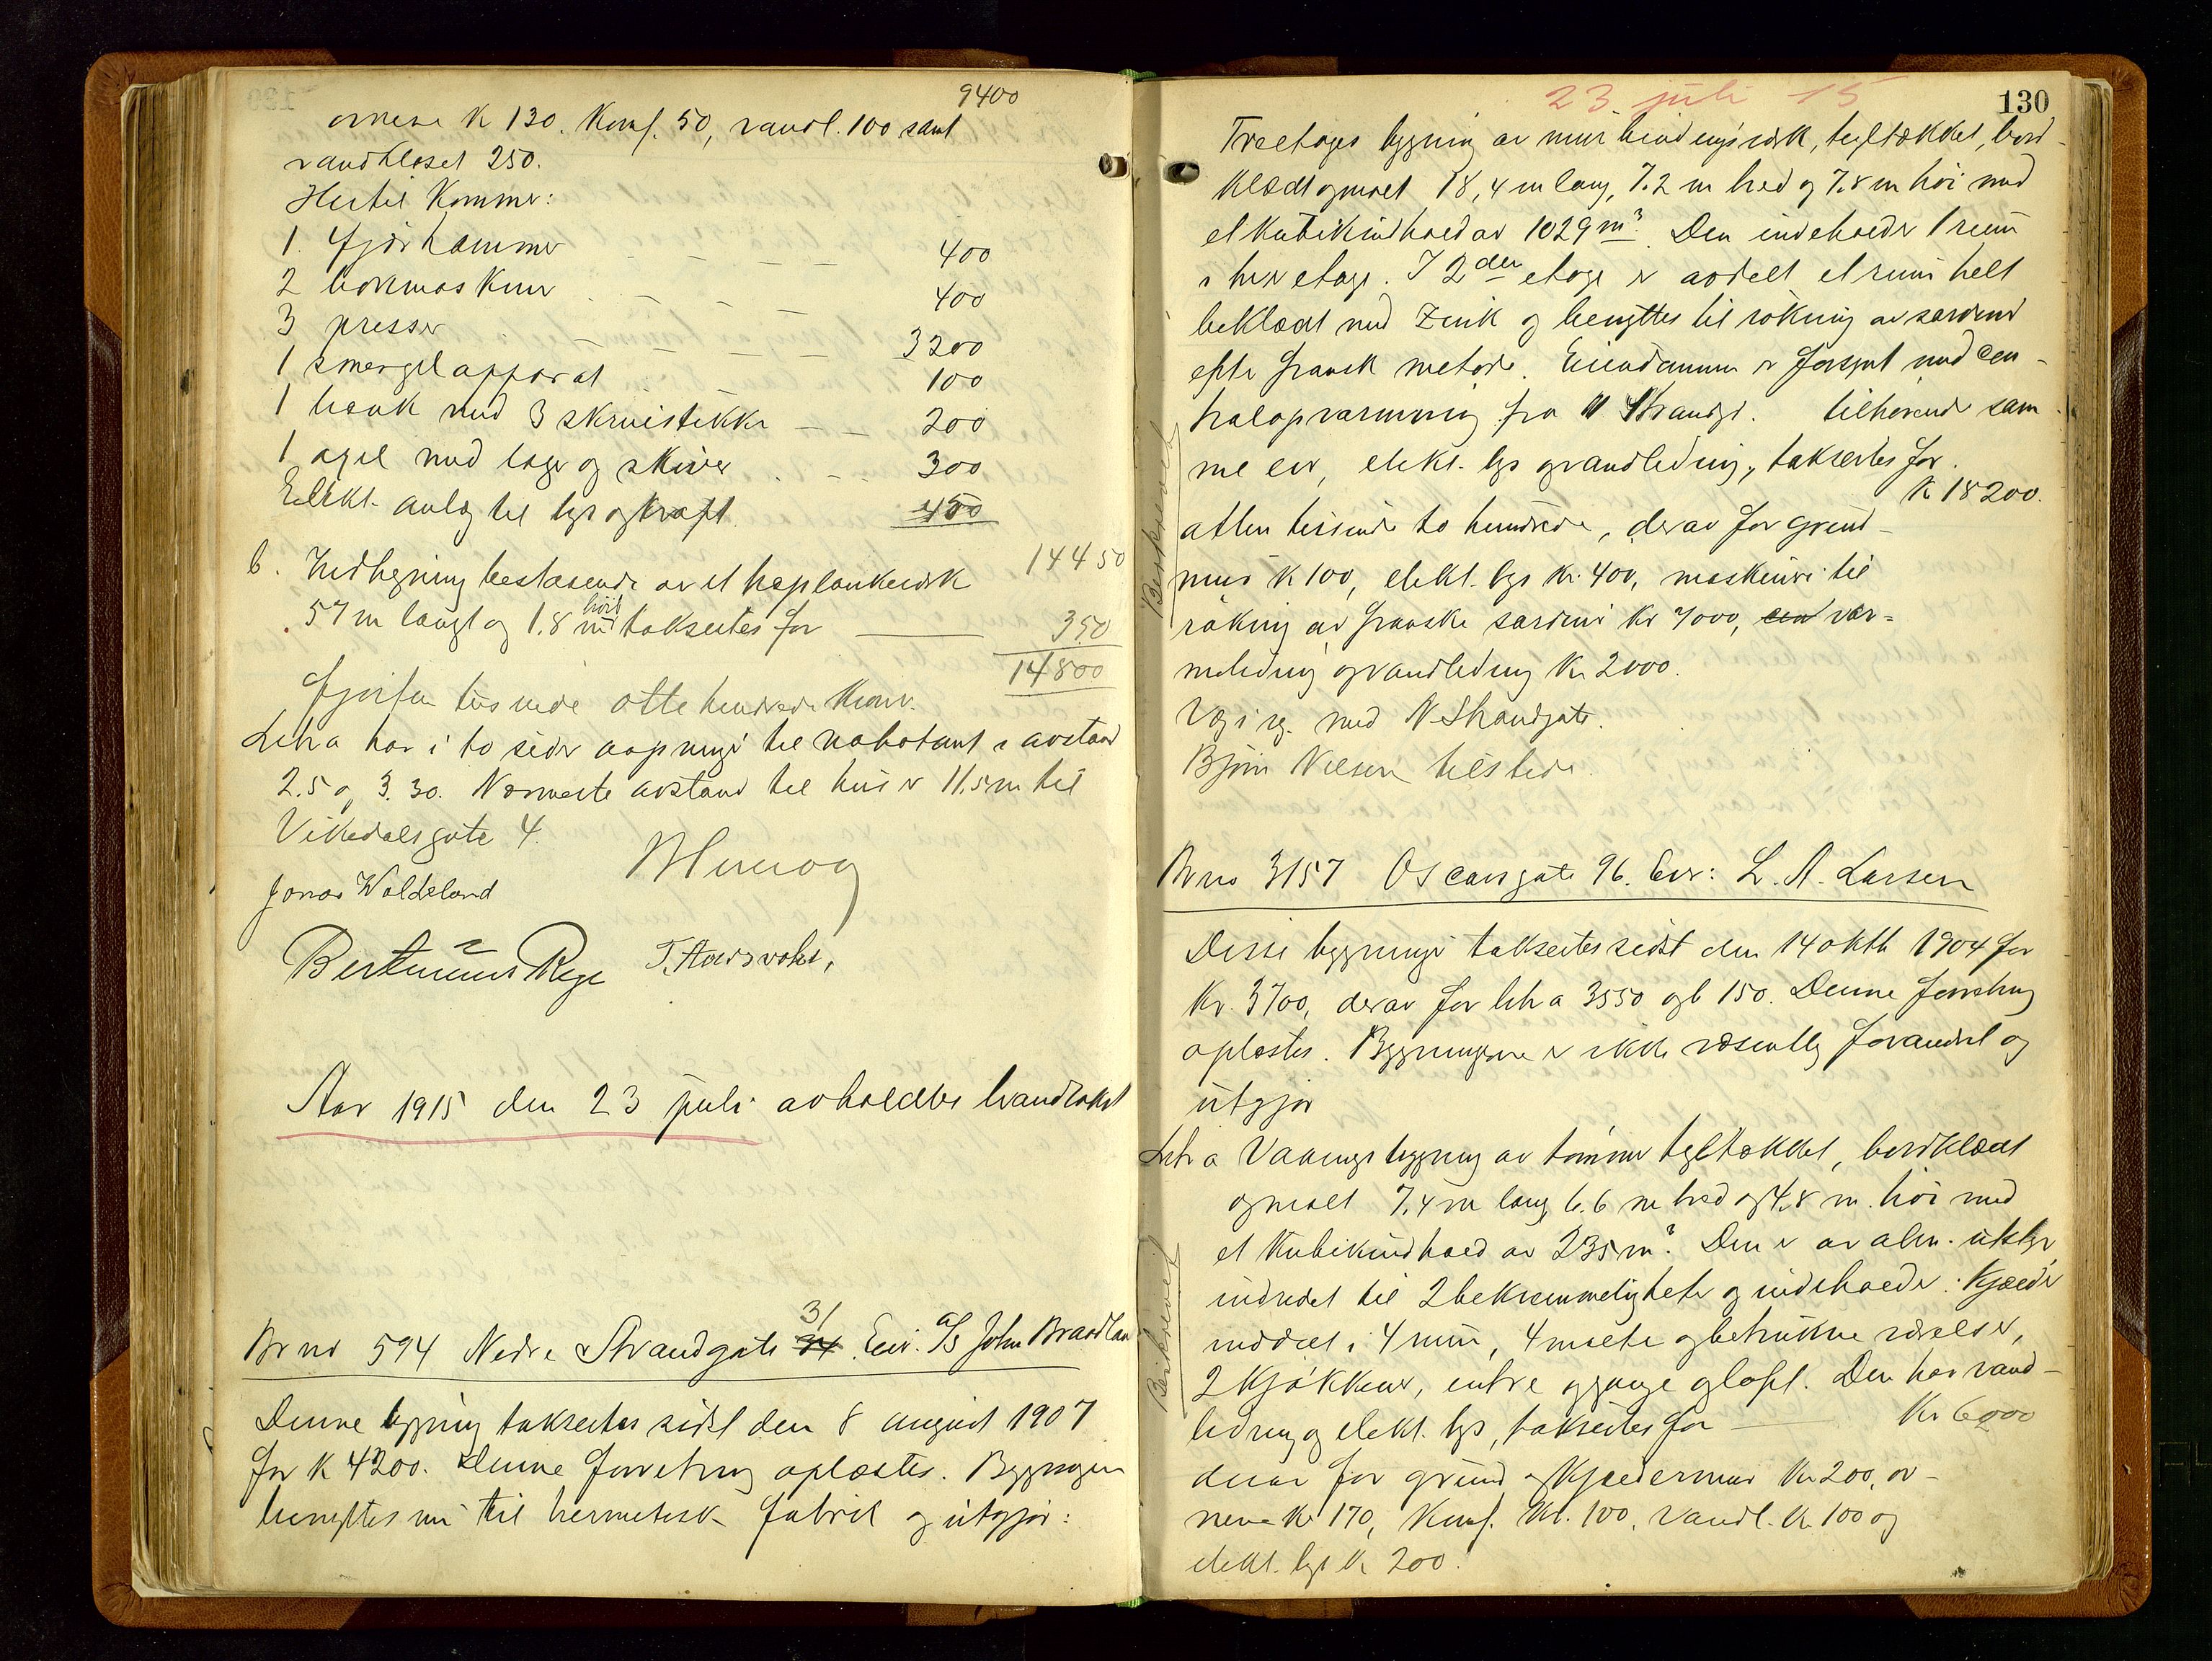 9400
ovnene K 130. Komf. 50, vandl. 100 samt
vandkloset 250.
Hertil kommer:
1 fjærhammer 400
2 boremaskiner 400
3 presser 3200
1 smergelapparat 100
1 bænk med 3 skruestikker 200
1 axel med lager og skiver 300
Elekt. anlæg til lys og kraft 450
14450
b. Indhegning bestaaende av et høplankeværk
57 m langt og 1.8 m høit taksertes for 350
14800
Fjorten tusinde otte hundrede kroner.
Litra a har i to sider aapninger til nabotomt i avstand
2.5 og 3.30. Nærmeste avstand til hus er 11.5 m til
Vikedalsgate 4.
Jonas Waldeland
Bertinius Rege
Aar 1915 den 23 juli avholdtes brandtakst
Br no 594 Nedre Strandgate 31 Eier: A/s John Braadland
Denne bygning taksertes sidst den 8 august 1907
for K 4200. Denne forretning oplæstes. Bygningen
benyttes nu til hermetisk fabrik og utgjør:
23 juli 15
130
Treetages bygning av mur bindingsverk, tegltækket, bord-
klædt og malt 18,4 m lang, 7.2 m bred og 7.8 m høi med
et kubikindhold av 1029 m³. Den indeholder 1 rum
i hver etage. I 2den etage er avdelt et rum helt
beklædt med Zink og benyttes til røkning av sardiner
efter fransk metode. Eiendommen er forsynt med cen-
tralopvarming fra N Strandgt. tilhørende sam-
me eier, elekt. lys og vandledning, taksertes for
K 18200.
atten tusinde to hundrede, derav for grund-
mur K 100, elekt. lys kr. 400, maskiner til
røking av franske sardiner Kr 7000, var-
meledning og vandledning Kr 2000.
Veg i sg. med N. Strandgate.
Bjørn Nielsen tilstede.
Br no 3157 Oscarsgate 96. Eier: L. A. Larsen
Disse bygninger taksertes sidst den 14 oktb 1904 for
Kr. 3700, derav for litr a 3550 og b 150. Denne forretning
oplæstes. Bygningene er ikke væsentlig forandret og
utgjør
Litr a Vaaningsbygning av tømmer tegltækket, bordklædt
og malt 7.4 m lang 6.6 m bred og 4.8 m høi med
et kubikindhold av 235 m³. Den er av alm. utstyr
indredet til 2 bekvemmeligheter og indeholder: Kjælder
inddelt i 4 rum, 4 malte og betrukne værelser,
2 kjøkkener, entre og gange og loft. Den har vand-
ledning og elekt. lys, taksertes for Kr 6000
derav for grund og kjældermur Kr 200, ov-
nene Kr 170, Komf. Kr. 100, vandl. Kr 100 og
elekt. lys Kr 200.